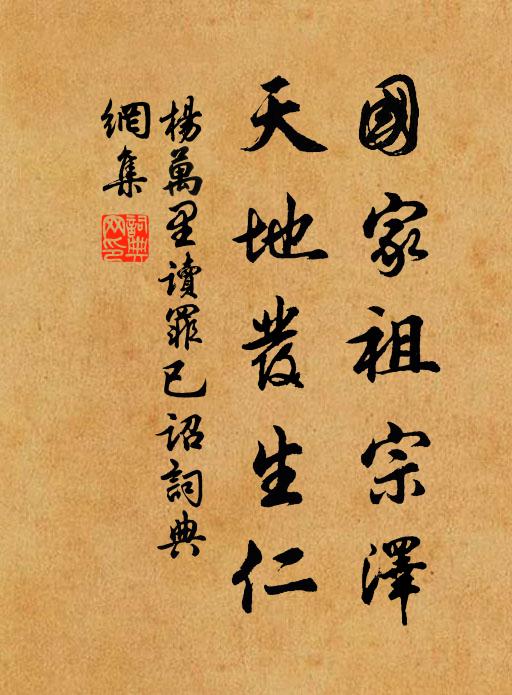 國家祖宗澤
天地發生仁
楊萬里讀罪已詔詞典
網集
詞典
网印